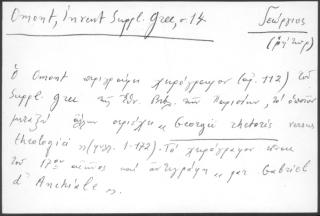 Omont, Invent Suppl. Grec, σ. 14
Γεώργιος
(ῥήτωρ)
Ὁ Omont περιγράφει χειρόγραφον (ἀρ. 112) τοῦ
Suppl. grec τῆς Ἐθν. Βιβλ. τῶν Παρισίων, τὸ ὁποῖον
μεταξὺ ἄλλων περιέχει « Georgii rhetoris versus
theologici » (φύλλ. 1-172). Τὸ χειρόγραφον εἶναι
τοῦ 17ου αἰῶνος καὶ ἀντεγράφη « par Gabriel
d'Anchiale ».